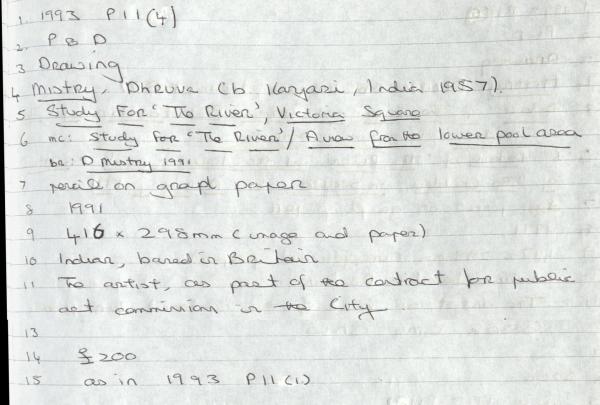 1. 1993 P11(4)
2. P & D
3 Drawing
4 Mistry, Dhruva (b Kanjari, India 1957).
5 Study For 'The River', Victoria Square
6 mc: Study for 'The River' / A view from the lower pool area
br: D Mistry 1991
7 pencil on graph paper
8 1991
9 416 x 298mm (image and paper)
10 Indian, based in Britain
11 The artist, as part of the contract for public
art commission in the City.
13
14 £200
15 as in 1993 P11(1)